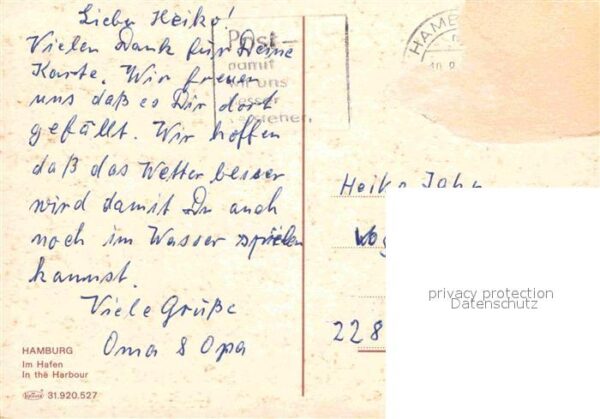 Lieber Heiko!
Vielen Dank für Deine
Karte. Wir freuen
uns daß es Dir dort
gefällt. Wir hoffen
daß das Wetter besser
wird damit Du auch
noch im Wasser spielen
kannst.
Viele Grüße
Oma & Opa
Post-
damit
wir uns
besser
verstehen.
HAMB
Heiko Jahn
228
privacy protection
Datenschutz
HAMBURG
Im Hafen
In the Harbour
31.920.527